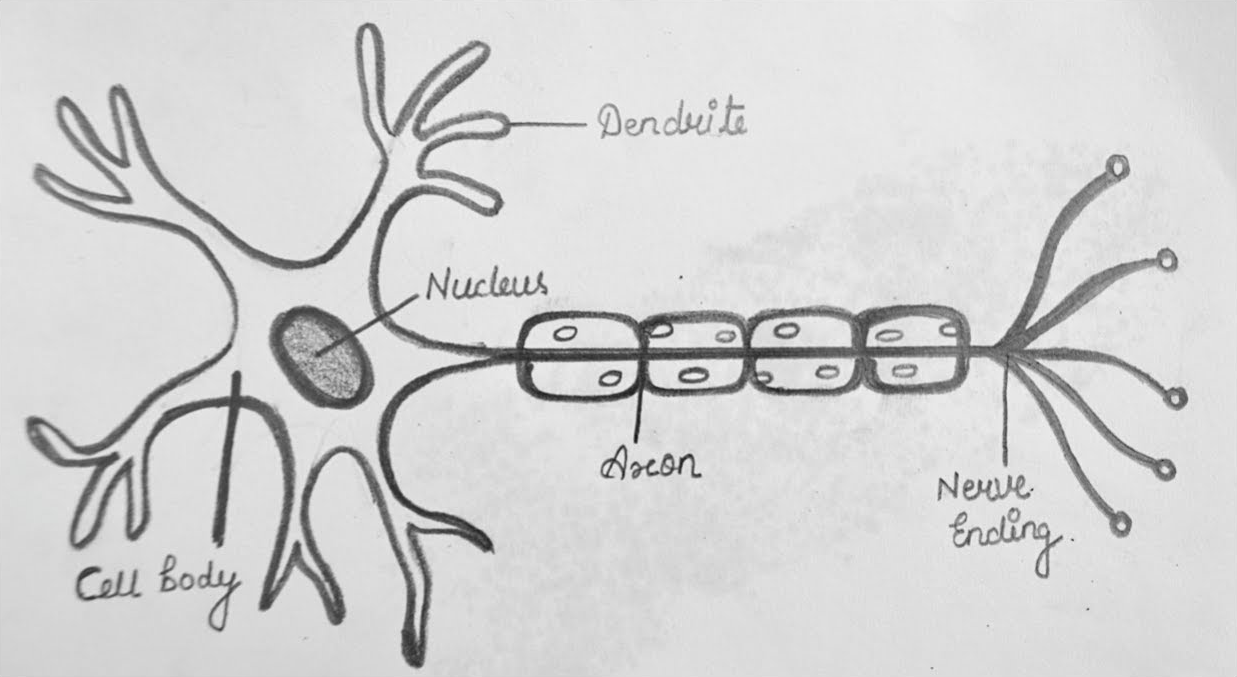 Dendrite
Nucleus
Axon
Nerve
Ending.
Cell body